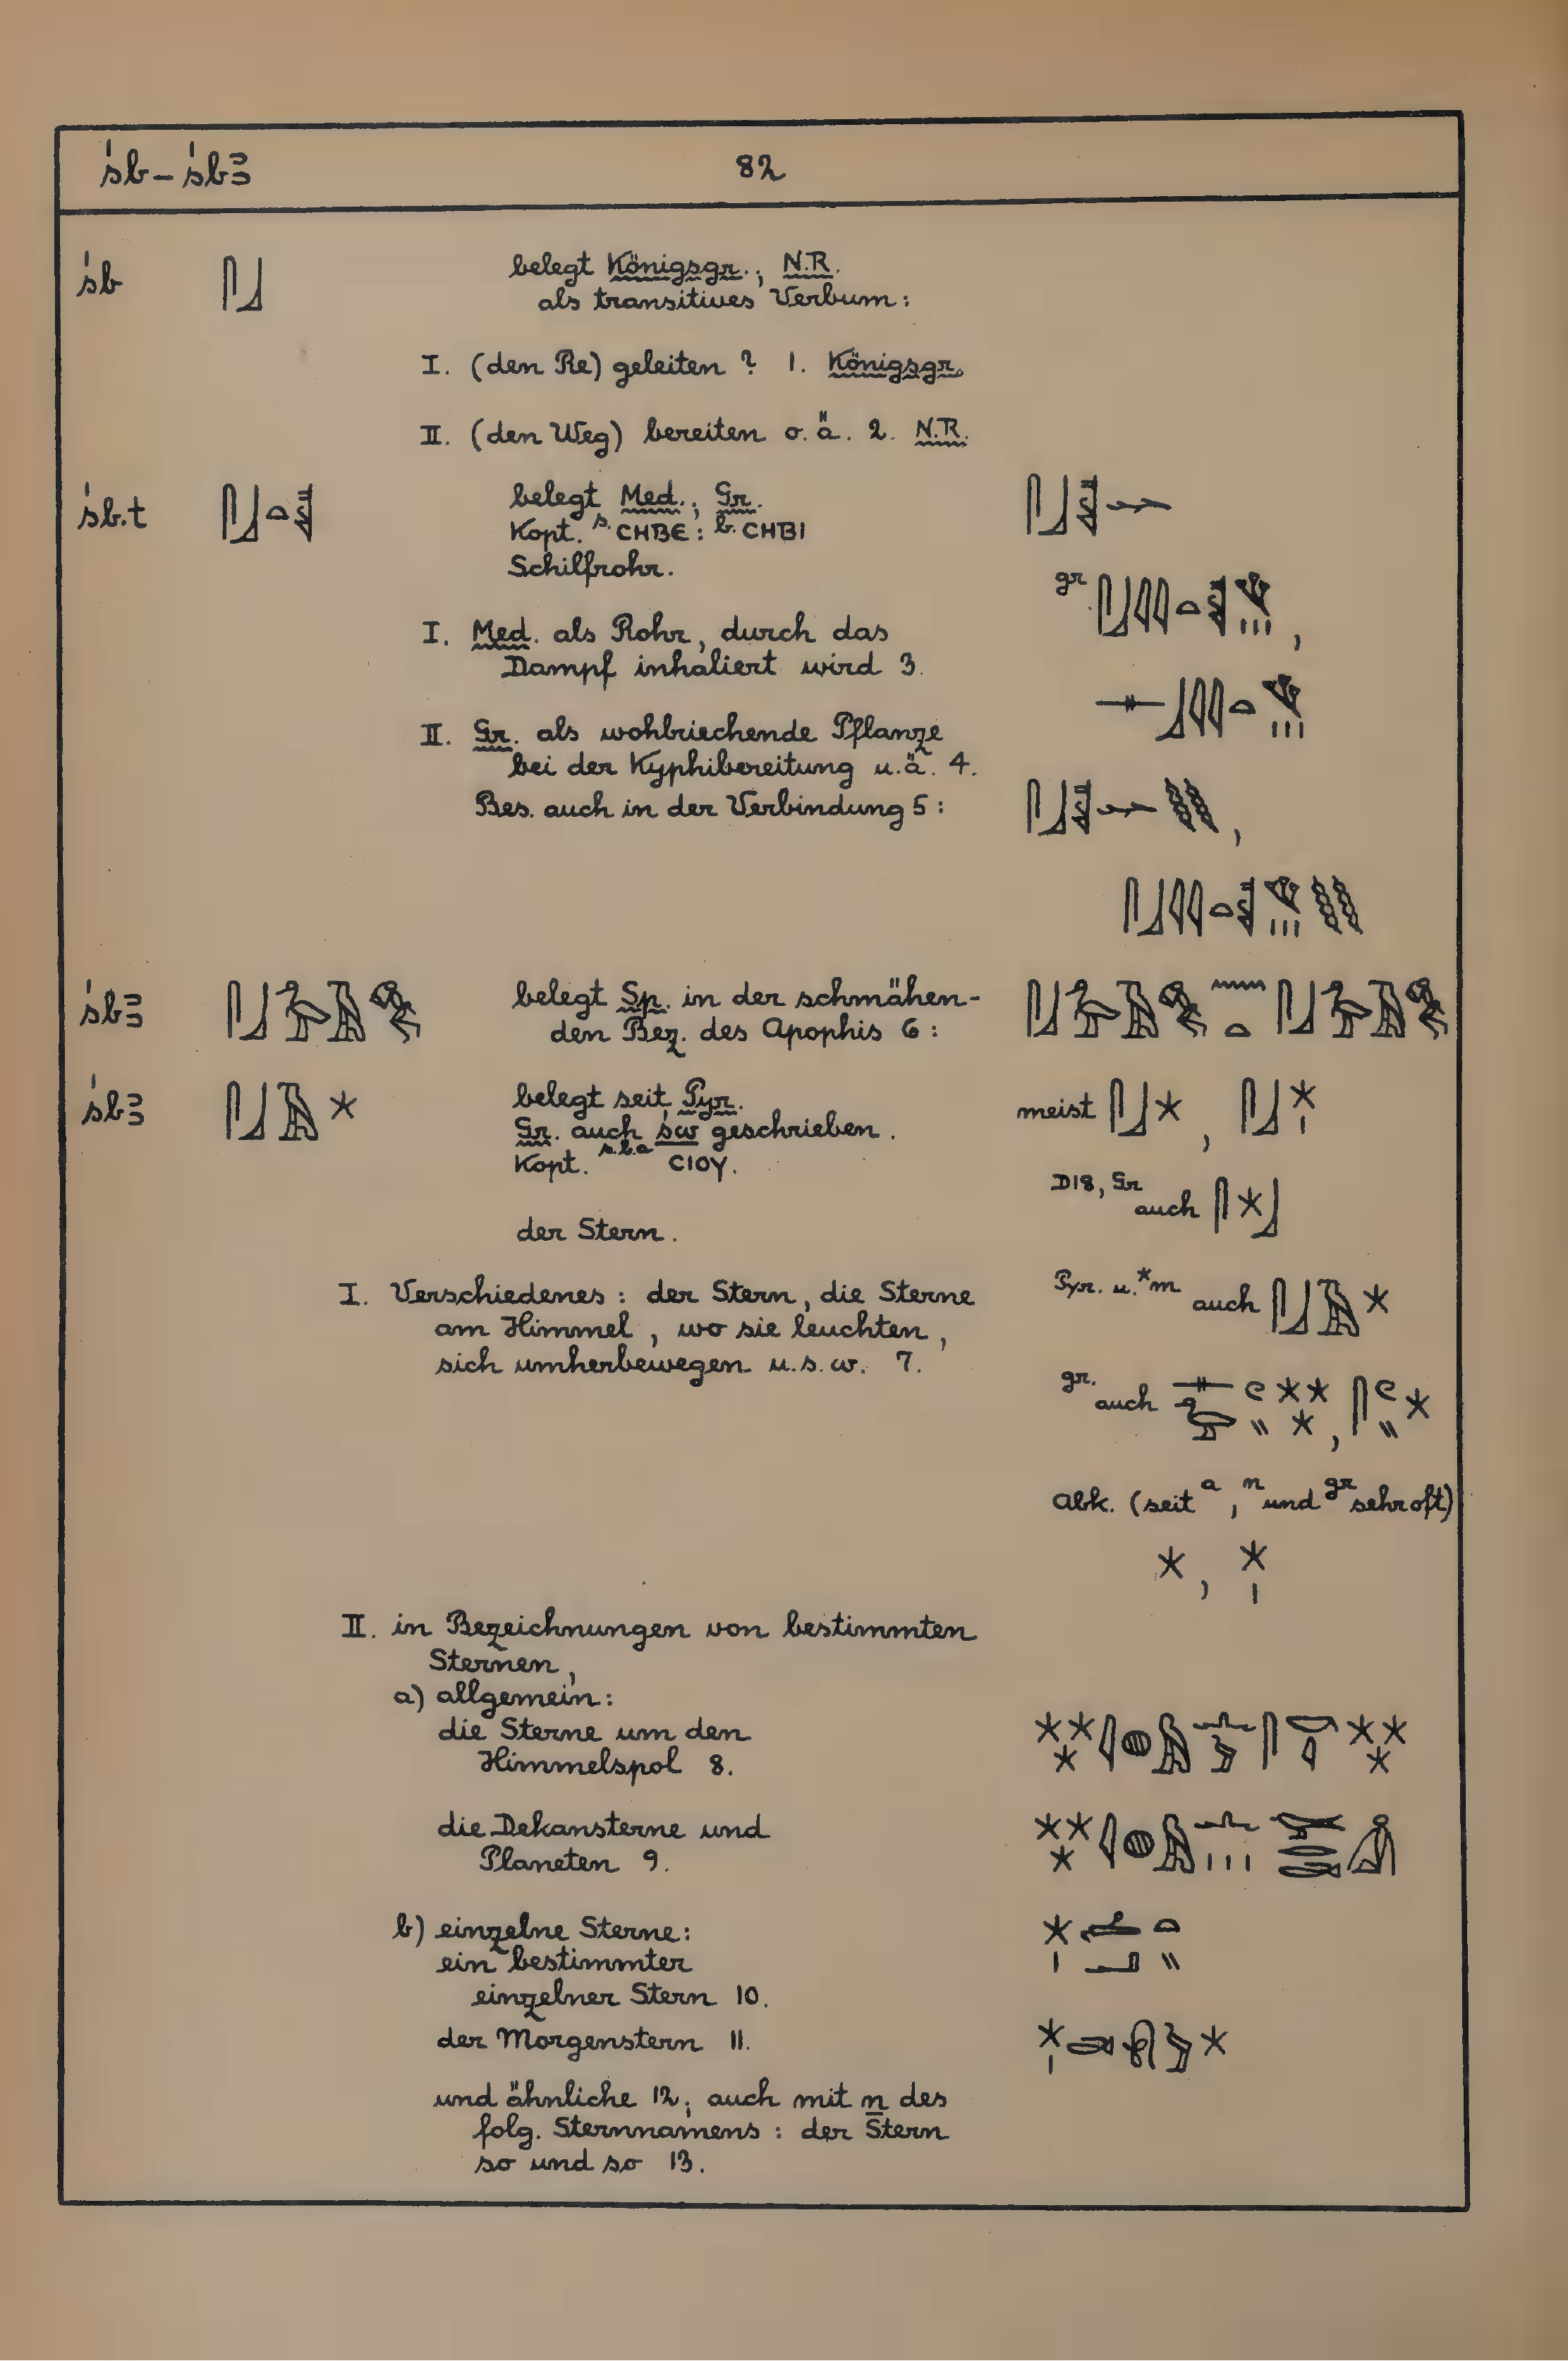 śb – śbꜣ
82
śb 𓋴𓃀 belegt Königsgr.; N.R.
als transitives Verbum:
I. (den Re) geleiten? 1. Königsgr.
II. (den Weg) bereiten o.ä. 2. N.R.
śb.t belegt Med.; Gr.
Kopt. s. CHBE: b. CHBI
Schilfrohr.
gr
I. Med. als Rohr, durch das
Dampf inhaliert wird 3.
II. Gr. als wohlriechende Pflanze
bei der Kyphibereitung u.ä. 4.
Bes. auch in der Verbindung 5:
śbꜣ belegt Sp. in der schmähen-
den Bez. des Apophis 6:
śbꜣ 𓋴𓃀𓄿𓇼 belegt seit Pyr. meist 𓋴𓃀𓇼, 𓋴𓃀𓇼𓏤
Gr. auch św geschrieben.
Kopt. s.b.a CIOY.
D18, Gr auch 𓋴𓇼𓃀
der Stern.
I. Verschiedenes: der Stern, die Sterne
am Himmel, wo sie leuchten,
sich umherbewegen u.s.w. 7.
Pyr. u. *m auch 𓋴𓃀𓄿𓇼
gr. auch
Abk. (seit a, n und gr sehr oft)
𓇼, 𓇼𓏤
II. in Bezeichnungen von bestimmten
Sternen,
a) allgemein:
die Sterne um den
Himmelspol 8.
die Dekansterne und
Planeten 9.
b) einzelne Sterne:
ein bestimmter
einzelner Stern 10.
der Morgenstern 11.
und ähnliche 12; auch mit n des
folg. Sternnamens: der Stern
so und so 13.